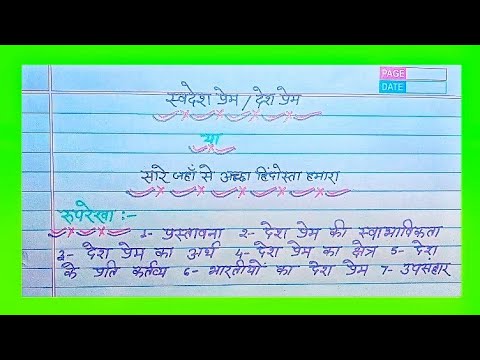 PAGE
DATE
स्वदेश प्रेम / देश प्रेम
या
सारे जहाँ से अच्छा हिंदोस्ता हमारा
रुपरेखा :-
1- प्रस्तावना 2- देश प्रेम की स्वाभाविकता
3- देश प्रेम का अर्थ 4- देश प्रेम का क्षेत्र 5- देश
के प्रति कर्तव्य 6- भारतीयों का देश प्रेम 7- उपसंहार